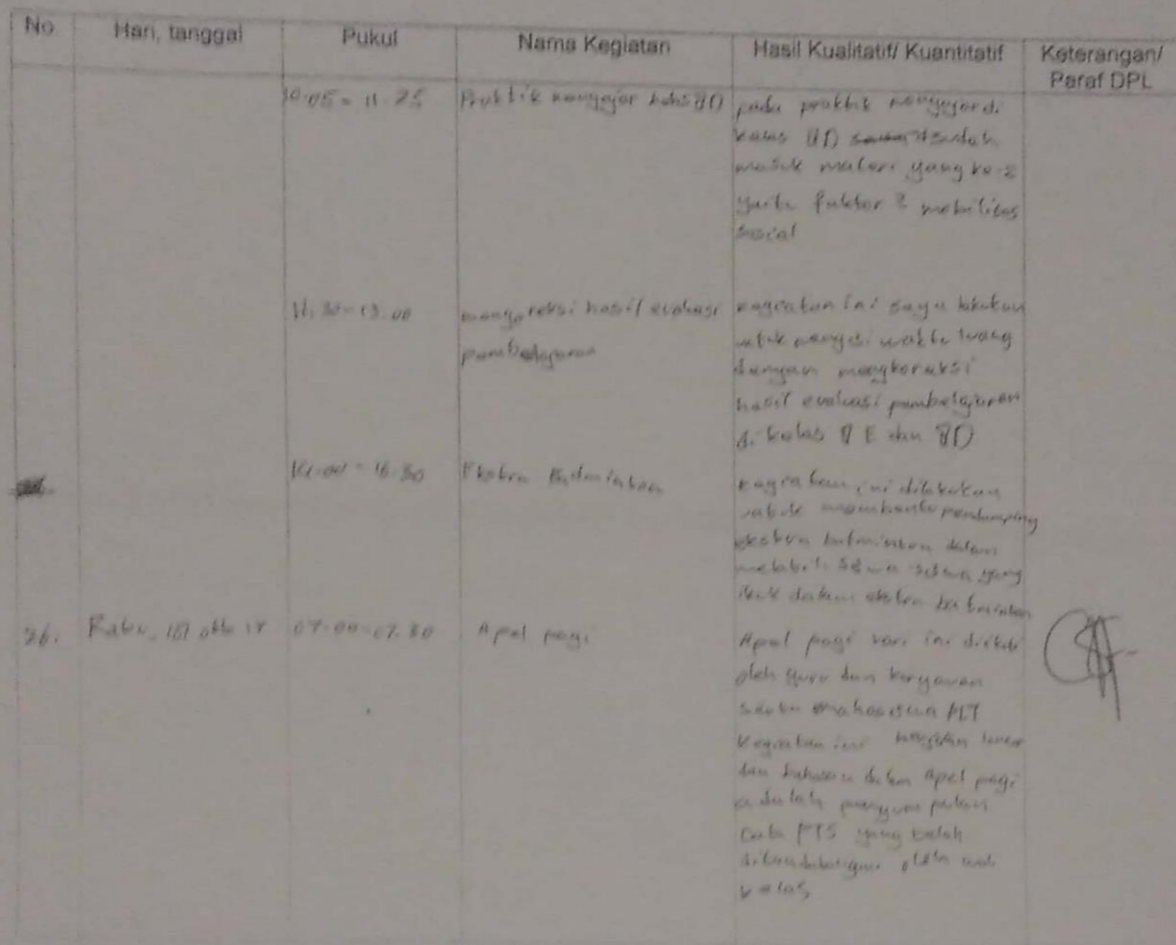 No. Hari, tanggal Pukul Nama Kegiatan Hasil Kualitatif/ Kuantitatif Keterangan/
Paraf DPL
10.05 - 11.25 Praktik mengajar kelas 8D pada praktik mengajar di
kelas 8D sudah
masuk materi yang ke-2
yaitu faktor 2 mobilitas
sosial
11.30 - 13.00 mengoreksi hasil evaluasi kegiatan ini saya lakukan
pembelajaran untuk mengisi waktu luang
dengan mengkoreksi
hasil evaluasi pembelajaran
di kelas 8E dan 8D
16.30 Ekstra Badminton kegiatan ini dilakukan
untuk membantu pendamping
ekstra dalam
melatih siswa siswa yang
ikut dalam ekstra
26. Rabu, 07.00 - 07.30 Apel pagi Apel pagi hari ini diikuti
oleh guru dan karyawan
serta mahasiswa PLT
kegiatan ini
dan dalam apel pagi
adalah pengumpulan
PTS yang telah
oleh wali
kelas